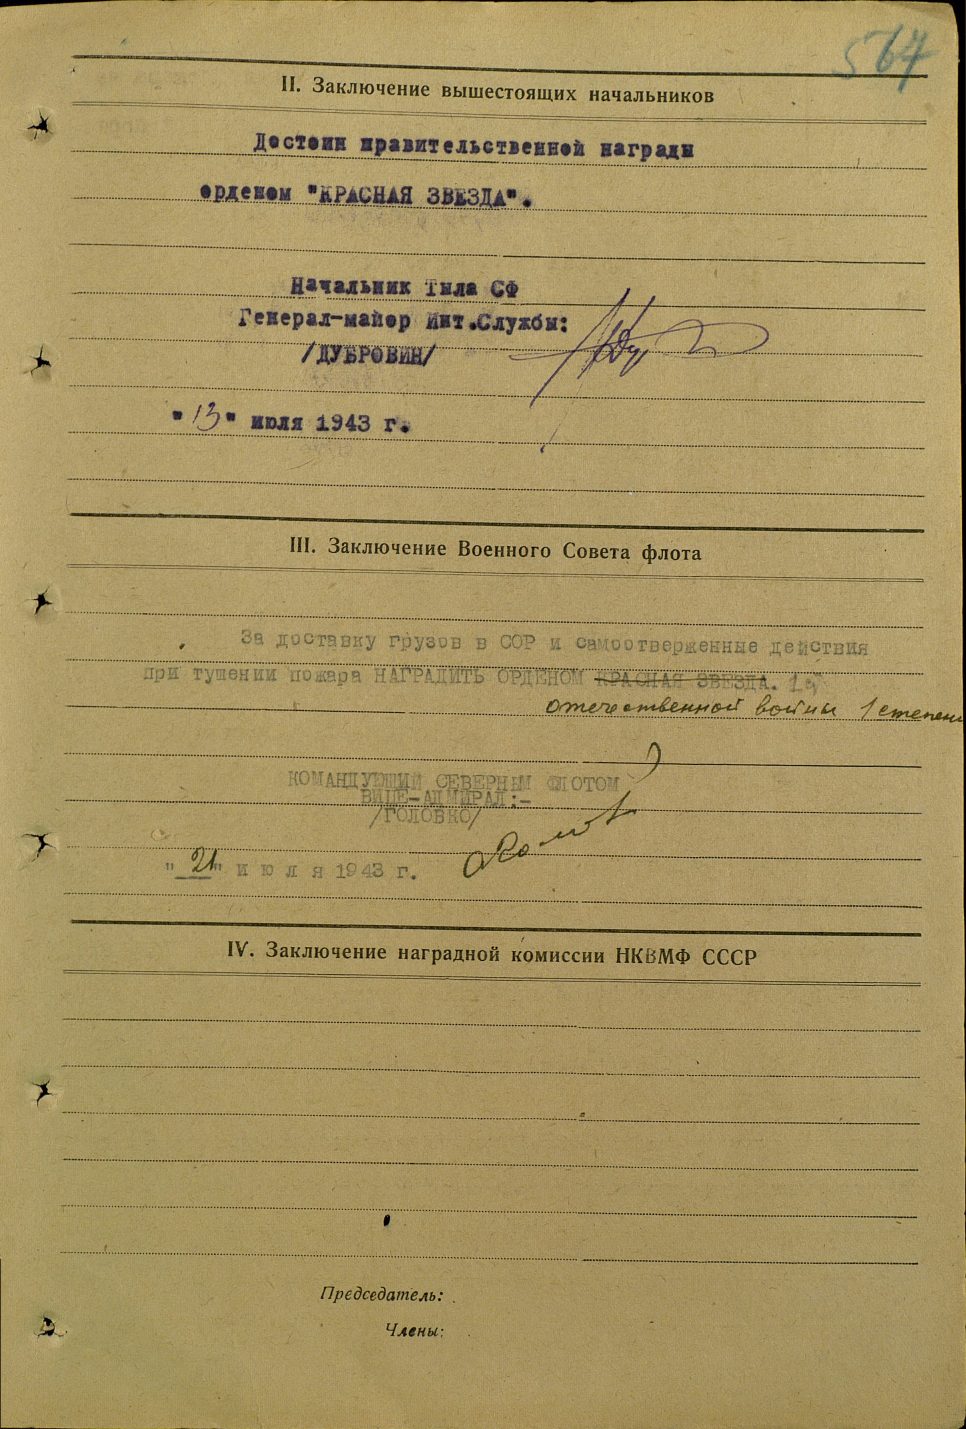 567
II. Заключение вышестоящих начальников
Достоин правительственной награды
орденом "КРАСНАЯ ЗВЕЗДА".
Начальник Тыла СФ
Генерал-майор Инт.Службы:
/ДУБРОВИН/
"13" июля 1943 г.
III. Заключение Военного Совета флота
За доставку грузов в СОР и самоотверженные действия
при тушении пожара НАГРАДИТЬ ОРДЕНОМ КРАСНАЯ ЗВЕЗДА.
отечественной войны 1 степени
КОМАНДУЮЩИЙ СЕВЕРНЫМ ФЛОТОМ
ВИЦЕ-АДМИРАЛ:-
/ГОЛОВКО/
"21" июля 1943 г.
IV. Заключение наградной комиссии НКВМФ СССР
Председатель:
Члены: